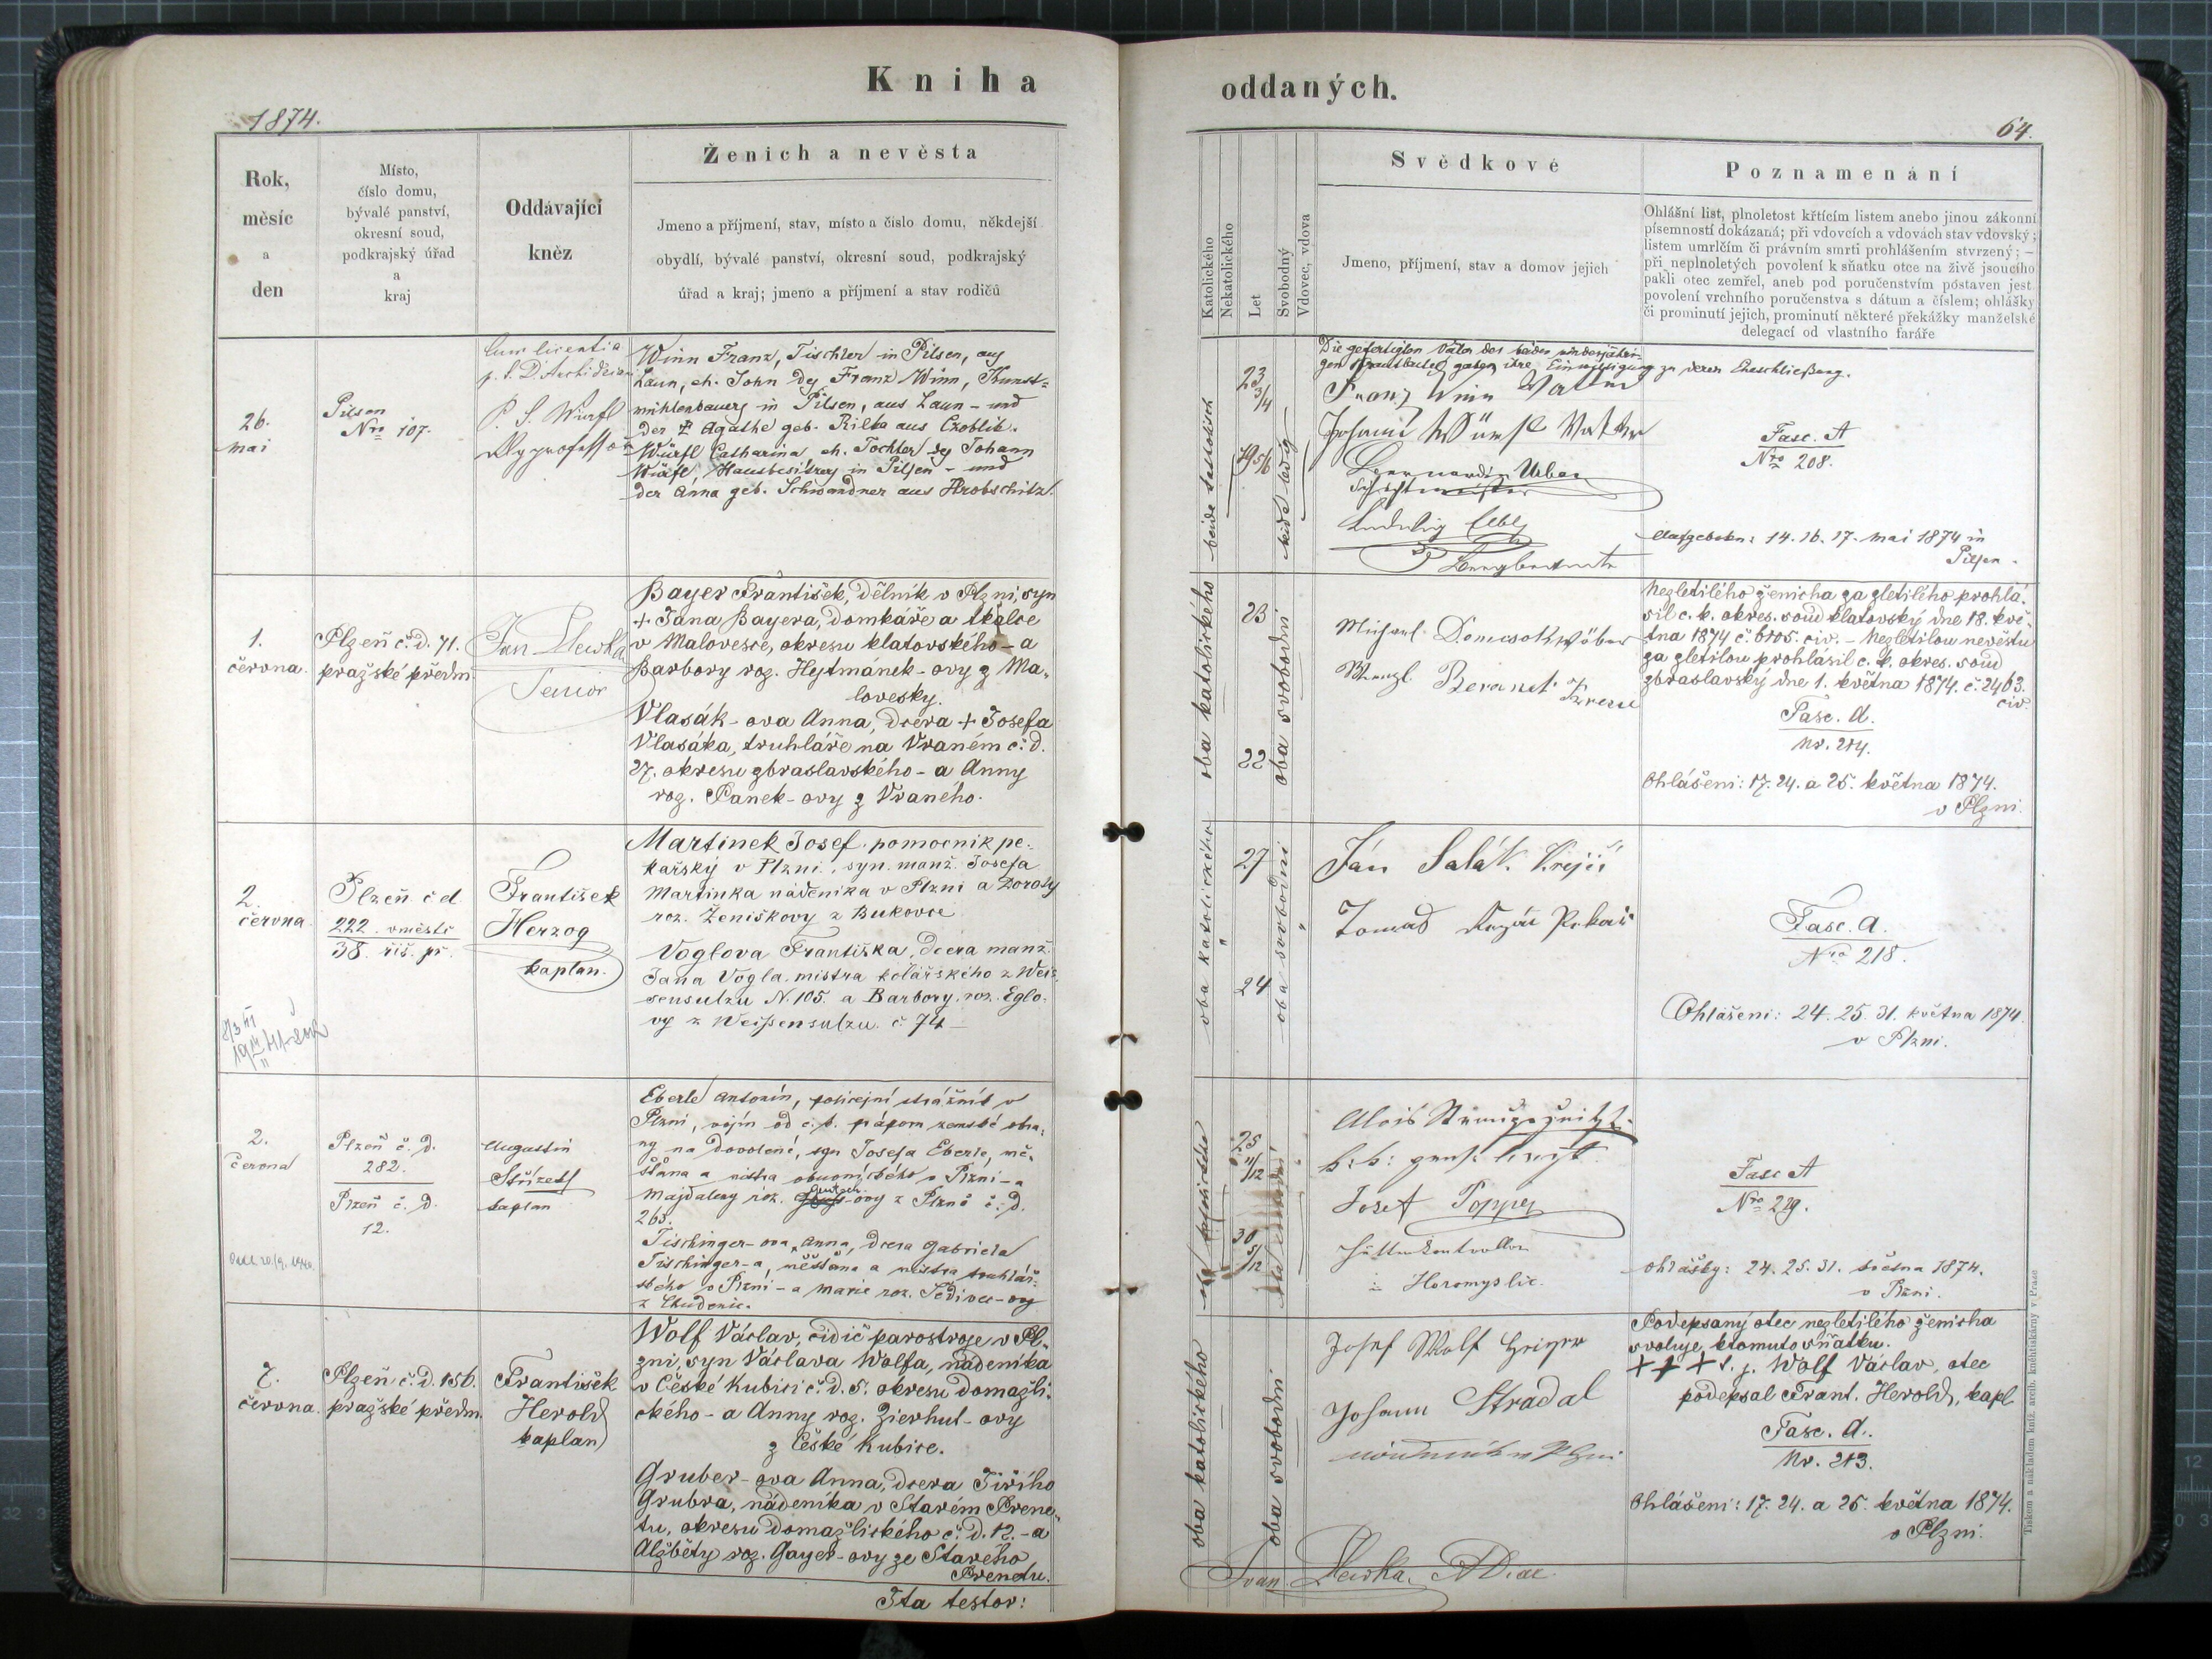 Kniha
oddaných.
1874.
64.
Rok,
měsíc
a
den
Místo,
číslo domu,
bývalé panství,
okresní soud,
podkrajský úřad
a
kraj
Oddávající
kněz
Ženich a nevěsta
Jmeno a příjmení, stav, místo a číslo domu, někdejší
obydlí, bývalé panství, okresní soud, podkrajský
úřad a kraj; jmeno a příjmení a stav rodičů
Katolického
Nekatolického
Let
Svobodný
Vdovec, vdova
Svědkové
Jmeno, příjmení, stav a domov jejich
Poznamenání
Ohlášní list, plnoletost křtícím listem anebo jinou zákonní
písemností dokázaná; při vdovcích a vdovách stav vdovský;
listem umrlčím či právním smrti prohlášením stvrzený; –
při neplnoletých povolení k sňatku otce na živě jsoucího
pakli otec zemřel, aneb pod poručenstvím postaven jest
povolení vrchního poručenstva s dátum a číslem; ohlášky
či prominutí jejich, prominutí některé překážky manželské
delegací od vlastního faráře
26.
Mai
Pilsen
Nro 107.
Cum licentia
P. S. Würfl
Winn Franz, Tischler in Pilsen, aus
Laun, eh. Sohn des Franz Winn, Kunst-
mühlenbauers in Pilsen, aus Laun - und
der Agathe geb. Rilka aus Czoblik.
Würfl Catharina, eh. Tochter des Johann
Würfl, Hausbesitzers in Pilsen - und
der Anna geb. Schwandner aus Hrobschitz.
beide katholisch
23
3/4
19 5/6
beide ledig
Die gefertigten Väter des beiden minderjähri-
gen Brautpaares gaben ihre Einwilligung zu deren Eheschließung.
Franz Winn Vatter
Johann Würfl Vatter
Urban
Ludwig
Fasc. A
Nro 208.
Aufgeboten: 14. 16. 17. Mai 1874 in
Pilsen.
1.
června.
Plzeň č. d. 71.
pražské předm.
Jan Slewka
Senior
Bayer František, dělník v Plzni, syn
+ Jana Bayera, domkáře a tkalce
v Malovesce, okresu klatovského - a
Barbory roz. Hejtmánek-ovy z Ma-
lovesky.
Vlasák-ova Anna, dcera + Josefa
Vlasáka, truhláře na Vraném č. d.
27. okresu zbraslavského - a Anny
roz. Panek-ovy z Vraného.
oba katolického
23
22
oba svobodni
Michael
Wenzl Beranek
Nezletilého ženicha za zletilého prohlá-
sil c. k. okres. soud klatovský dne 18. kvě-
tna 1874 č. 6105. civ. - Nezletilou nevěstu
za zletilou prohlásil c. k. okres. soud
zbraslavský dne 1. května 1874. č. 2463.
civ.
Fasc. A.
Nr. 214.
Ohlášeni: 17. 24. a 25. května 1874.
v Plzni.
2.
června.
Plzeň č d
222. v městě
38. řiš. př.
František
Herzog
kaplan.
Martinek Josef. pomocnik pe-
kařský v Plzni, syn. manž. Josefa
Martinka nádenika v Plzni a Doroty
roz. Ženiškovy z Bukovce
Voglova Františka, dcera manž.
Jana Vogla. mistra kolářského z Weis-
sensulzu N. 105. a Barbory. roz. Eglo-
vy z Weißensulzu. č. 74
oba katolického
27
24
oba svobodni
Ján Salák. Krejčí
Tomas
Fasc. A.
Nro 218.
Ohlášeni: 24. 25. 31. května 1874.
v Plzni.
2.
června
Plzeň č. d.
282.
Plzeň č. d.
12.
Augustin
Střízek
kaplan
Eberle Antonín, policejní strážník v
Plzni, vojín od c. k. práporu zemské obra-
ny na dovolené, syn Josefa Eberle, mě-
šťana a mistra obuvnického v Plzni - a
Majdaleny roz. -ovy z Plzně č. d.
265.
Tischinger-ova Anna, dcera Gabriela
Tischinger-a, měšťana a mistra truhlář-
ského v Plzni - a Marie roz. Šedivec-ovy
z Chudenic.
25
11/12
30
5/12
Alois
Josef Popper
Hüttenkontrollor
in Horomyslic.
Fasc A
Nro 229.
Ohlášky: 24. 25. 31. května 1874.
v Plzni.
7.
června.
Plzeň č. d. 156.
pražské předm.
František
Herold
kaplan
Wolf Václav, cidič parostroje v Pl-
zni, syn Václava Wolfa, nádeníka
v České Kubici č. d. 5. okresu domažli-
ckého - a Anny roz. Zierhut-ovy
z České Kubice.
Gruber-ova Anna, dcera Jiřího
Grubra, nádeníka v Starém Prene-
tu, okresu domažlického č. d. 12. - a
Alžběty roz. Gayer-ovy ze Starého
Prenetu.
oba katolického
oba svobodni
Josef Wolf
Johann Stradal
Podepsaný otec nezletilého ženicha
svoluje k tomuto sňatku.
+ + + t. j. Wolf Václav, otec
podepsal Frant. Herold, kapl
Fasc. A.
Nr. 213.
Ohlášeni: 17. 24. a 25. května 1874.
v Plzni.
Ita testor:
Ivan Slewka
Tiskem a nákladem kníž. arcib. knihtiskárny v Praze